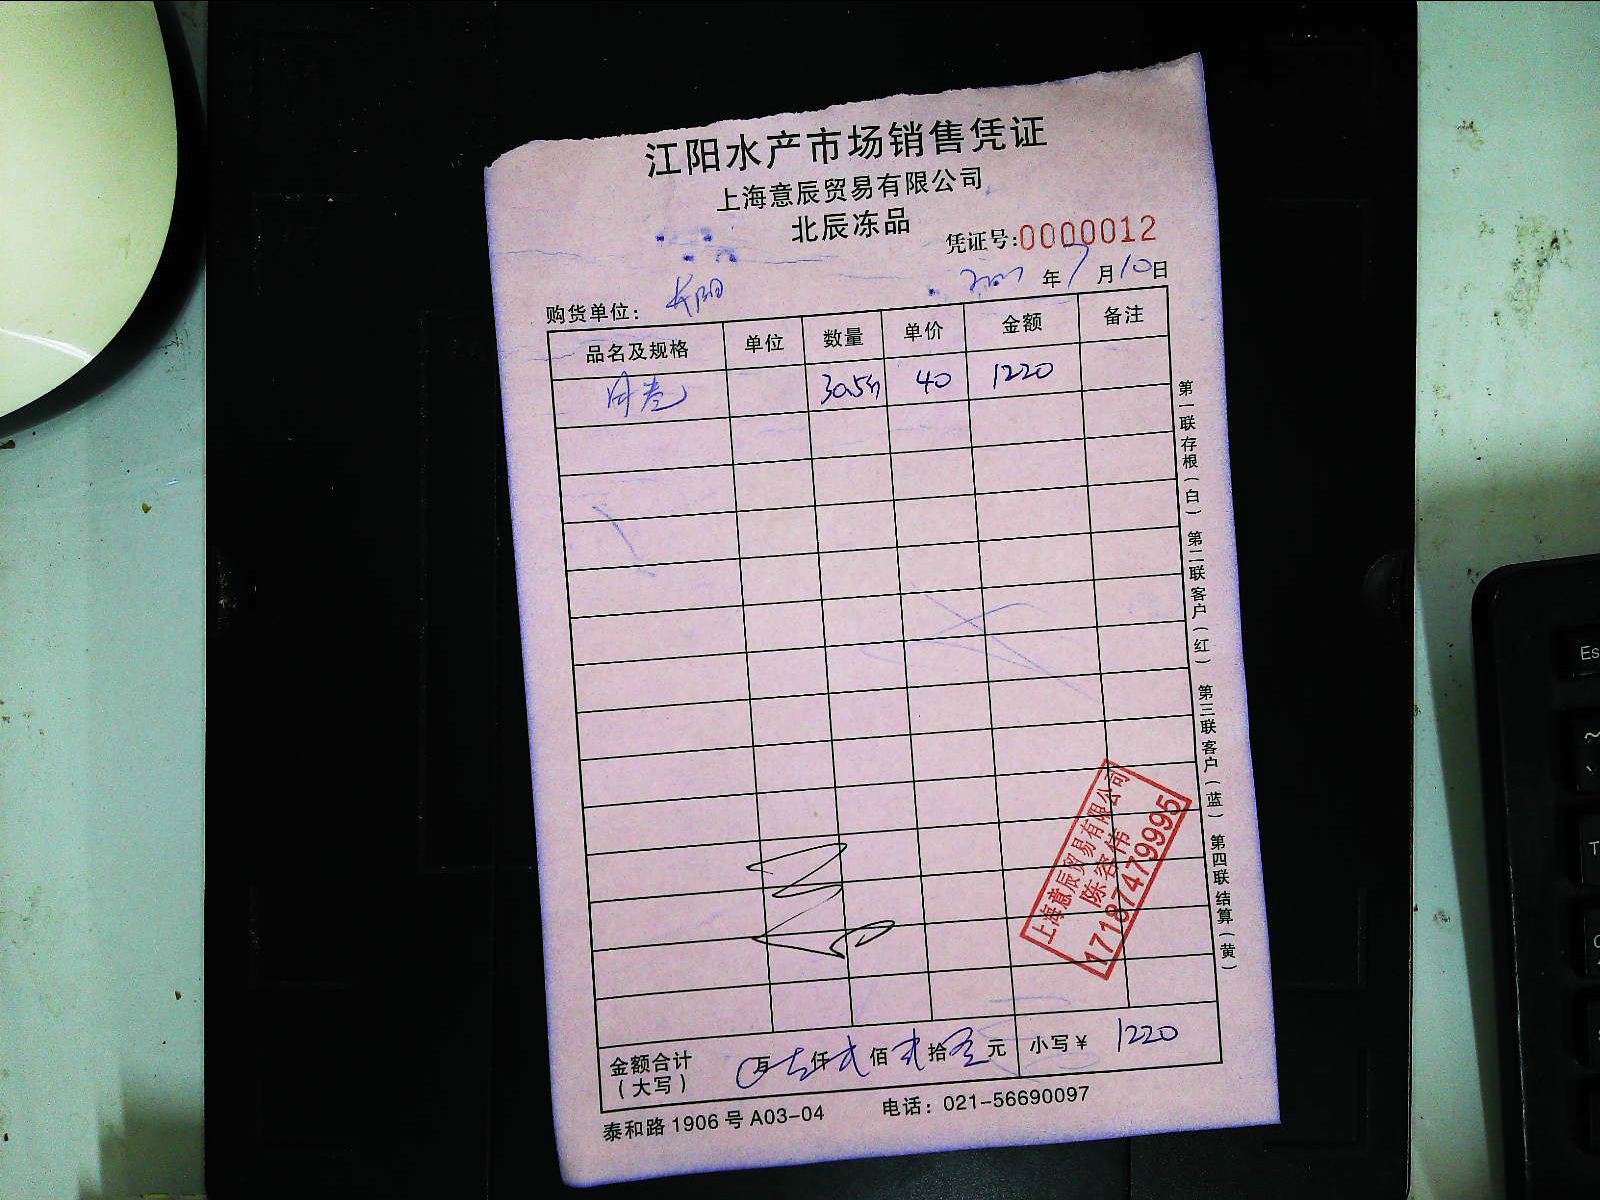 江阳水产市场销售凭证
上海意辰贸易有限公司
北辰冻品
凭证号:0000012
年7月10日
购货单位：长阳
品名及规格 单位 数量 单价 金额 备注
30.5 40 1220
第一联存根（白） 第二联客户（红） 第三联客户（蓝） 第四联结算（黄）
上海意辰贸易有限公司
陈容伟
17187479995
金额合计（大写） 万 仟 贰 佰 贰 拾 元 小写￥ 1220
泰和路1906号A03-04 电话：021-56690097
Es